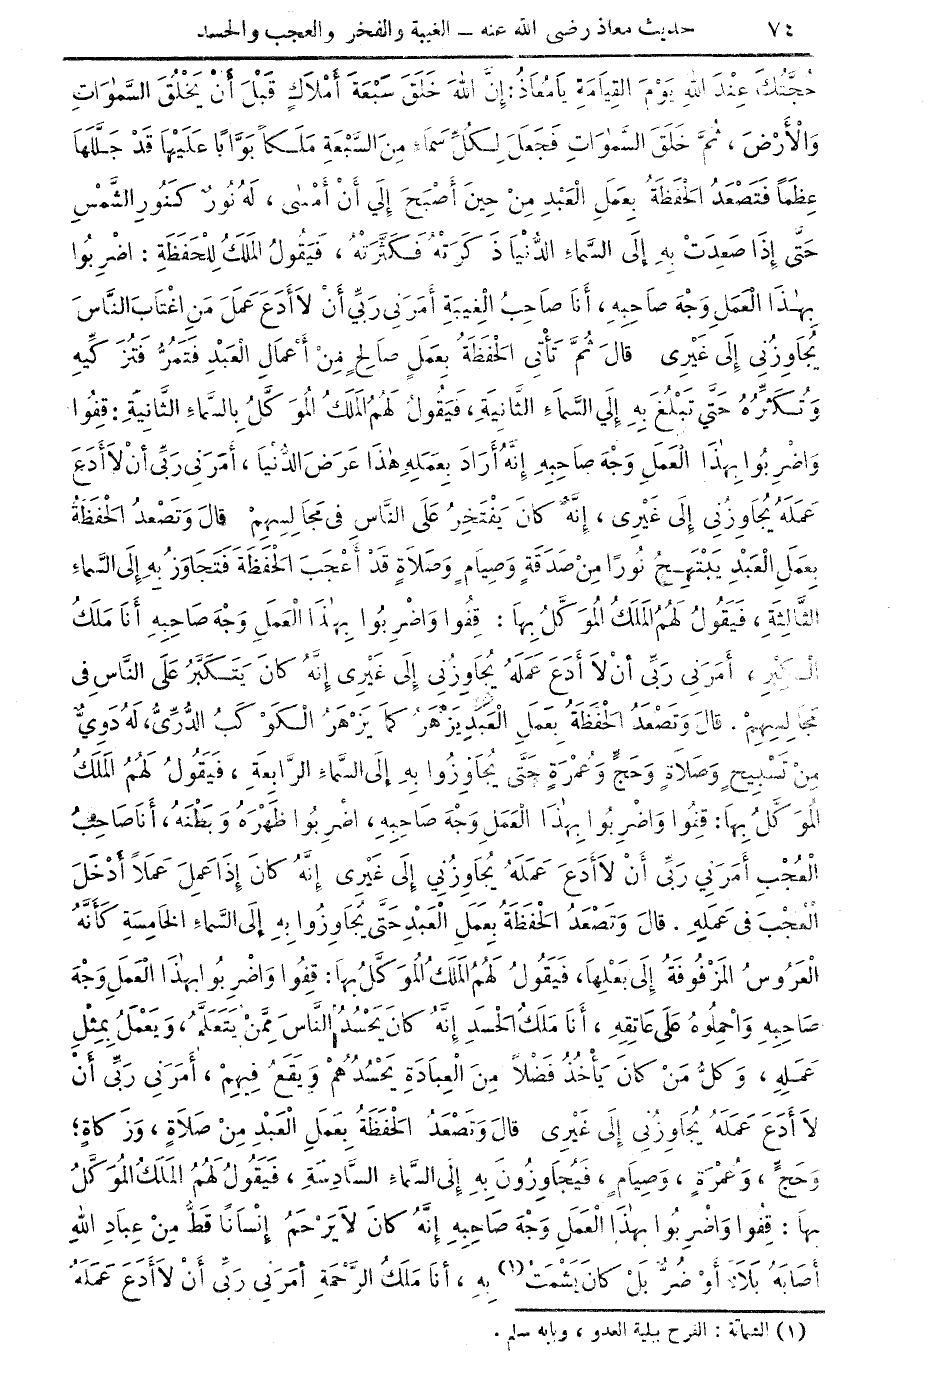 ٧٤ حديث معاذ رضى الله عنه – الغيبة والفخر والعجب والحسد
حُجَّتُكَ عِنْدَ اللهِ يَوْمَ القِيَامَةِ يَامُعَاذُ: إِنَّ اللهَ خَلَقَ سَبْعَةَ أَمْلَاكٍ قَبْلَ أَنْ يَخْلُقَ السَّمٰوَاتِ
وَالْأَرْضَ ، ثُمَّ خَلَقَ السَّمٰوَاتِ فَجَعَلَ لِكُلِّ سَمَاءٍ مِنَ السَّبْعَةِ مَلَكاً بَوَّابًا عَلَيْهَا قَدْ جَلَّلَهَا
عِظَماً فَتَصْعَدُ الحَفَظَةُ بِعَمَلِ الْعَبْدِ مِنْ حِينَ أَصْبَحَ إِلَي أَنْ أَمْسٰى ، لَهُ نُورٌ كَنُورِ الشَّمْسِ
حَتَّى إِذَا صَعِدَتْ بِهِ إِلَى السَّمَاءِ الدُّنْيَا ذَكَرَتْهُ فَكَثَّرَتْهُ ، فَيَقُولُ المَلَكُ لِلْحَفَظَةِ : اضْرِبُوا
بِهٰذَا الْعَمَلِ وَجْهَ صَاحِبِهِ ، أَنَا صَاحِبُ الْغِيبَةِ أَمَرَنِى رَبِّي أَنْ لَا أَدَعَ عَمَلَ مَنِ اغْتَابَ النَّاسَ
يُجَاوِزُنِى إِلَى غَيْرِى قالَ ثُمَّ تَأْتِى الحَفَظَةُ بِعَمَلٍ صَالِحٍ مِنْ أَعْمَالِ الْعَبْدِ فَتَمُرُّ فَتُزَكِّيهِ
وَتُكَثِّرُهُ حَتَّي تَبْلُغَ بِهِ إِلَي السَّمَاءِ الثَّانِيَةِ ، فَيَقُولُ لَهُمُ المَلَكُ المُوَكَّلُ بِالسَّمَاءِ الثَّانِيَةِ : قِفُوا
وَاضْرِبُوا بِهٰذَا الْعَمَلِ وَجْهَ صَاحِبِهِ إِنَّهُ أَرَادَ بِعَمَلِهِ هٰذَا عَرَضَ الدُّنْيَا ، أَمَرَنِى رَبِّى أَنْ لَا أَدَعَ
عَمَلَهُ يُجَاوِزُنِي إِلَى غَيْرِى ، إِنَّهُ كانَ يَفْتَخِرُ عَلَى النَّاسِ فِى مَجَالِسِهِمْ قالَ وَتَصْعَدُ الحَفَظَةُ
بِعَمَلِ الْعَبْدِ يَبْتَهِجُ نُورًا مِنْ صَدَقَةٍ وَصِيَامٍ وَصَلَاةٍ قَدْ أَعْجَبَ الحَفَظَةَ فَتَجَاوَزُ بِهِ إِلَى السَّمَاءِ
الثَّالِثَةِ ، فَيَقُولُ لَهُمُ المَلَكُ المُوَكَّلُ بِهَا : قِفُوا وَاضْرِبُوا بِهٰذَا الْعَمَلِ وَجْهَ صَاحِبِهِ أَنَا مَلَكُ
الْكِبْرِ ، أَمَرَنِى رَبِّى أَنْ لَا أَدَعَ عَمَلَهُ يُجَاوِزُنِي إِلَى غَيْرِى إِنَّهُ كانَ يَتَكَبَّرُ عَلَى النَّاسِ فِى
مَجَالِسِهِمْ . قالَ وَتَصْعَدُ الحَفَظَةُ بِعَمَلِ الْعَبْدِ يَزْهَرُ كَمَا يَزْهَرُ الْكَوْكَبُ الدُّرِّىُّ، لَهُ دَوِيٌّ
مِنْ تَسْبِيحٍ وَصَلَاةٍ وَحَجٍّ وَعُمْرَةٍ حَتَّى يُجَاوِزُوا بِهِ إِلَى السَّمَاءِ الرَّابِعَةِ ، فَيَقُولُ لَهُمُ المَلَكُ
المُوَكَّلُ بِهَا: قِفُوا وَاضْرِبُوا بِهٰذَا الْعَمَلِ وَجْهَ صَاحِبِهِ ، اضْرِبُوا ظَهْرَهُ وَبَطْنَهُ ، أَنَا صَاحِبُ
الْعُجْبِ أَمَرَنِي رَبِّى أَنْ لَا أَدَعَ عَمَلَهُ يُجَاوِزُنِي إِلَى غَيْرِى إِنَّهُ كانَ إِذَا عَمِلَ عَمَلاً أَدْخَلَ
الْعُجْبَ فِى عَمَلِهِ . قالَ وَتَصْعَدُ الحَفَظَةُ بِعَمَلِ الْعَبْدِ حَتَّى يُجَاوِزُوا بِهِ إِلَى السَّمَاءِ الخَامِسَةِ كَأَنَّهُ
الْعَرُوسُ المَزْفُوفَةُ إِلَى بَعْلِهَا، فَيَقُولُ لَهُمُ المَلَكُ المُوَكَّلُ بِهَا: قِفُوا وَاضْرِبُوا بِهٰذَا الْعَمَلِ وَجْهَ
صَاحِبِهِ وَاحْمِلُوهُ عَلَى عَاتِقِهِ ، أَنَا مَلَكُ الحَسَدِ إِنَّهُ كانَ يَحْسُدُ النَّاسَ مِمَّنْ يَتَعَلَّمُ ، وَيَعْمَلُ بِمِثْلِ
عَمَلِهِ ، وَكُلُّ مَنْ كانَ يَأْخُذُ فَضْلاً مِنَ الْعِبَادَةِ يَحْسُدُهُمْ وَيَقَعُ فِيهِمْ ، أَمَرَنِى رَبِّى أَنْ
لَا أَدَعَ عَمَلَهُ يُجَاوِزُنِى إِلَى غَيْرِى قالَ وَتَصْعَدُ الحَفَظَةُ بِعَمَلِ الْعَبْدِ مِنْ صَلَاةٍ ، وَزَكاةٍ ؛
وَحَجٍّ ، وَعُمْرَةٍ ، وَصِيَامٍ ، فَيُجَاوِزُونَ بِهِ إِلَى السَّمَاءِ السَّادِسَةِ ، فَيَقُولُ لَهُمُ المَلَكُ المُوَكَّلُ
بِهَا : قِفُوا وَاضْرِبُوا بِهٰذَا الْعَمَلِ وَجْهَ صَاحِبِهِ إِنَّهُ كانَ لَا يَرْحَمُ إِنْسَانًا قَطُّ مِنْ عِبَادِ اللهِ
أَصَابَهُ بَلَاءٌ أَوْ ضُرٌّ بَلْ كانَ يَشْمَتُ (١) بِهِ ، أَنَا مَلَكُ الرَّحْمَةِ أَمَرَنِى رَبِّى أَنْ لَا أَدَعَ عَمَلَهُ
(١) الشماتة : الفرح ببلية العدو ، وبابه سلم .